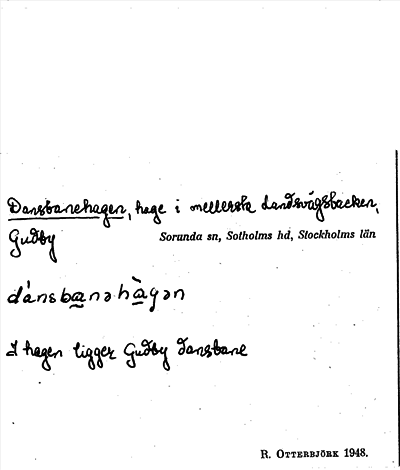 Dansbanehagen, hage i mellersta Landsvägsbacken,
Gudby Sorunda sn, Sotholms hd, Stockholms län
dánsba̲nəhà̲gən
I hagen ligger Gudby dansbane
R. OTTERBJÖRK 1948.